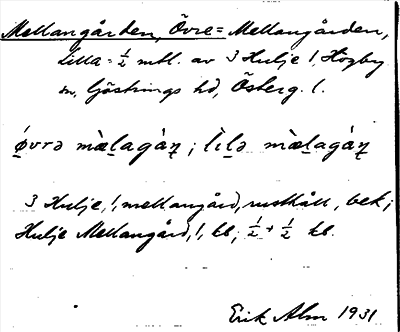 Mellangården, Övre= Mellangården,
Lilla= ½ mtl. av 3 Hulje !, Högby
sn, Göstrings hd, Österg. l.
ǿvrə mæ̀lagàɳ ; lìlə mæ̀lagàɳ
3 Hulje, !, mellangård, rusthåll, bek;
Hulje Mellangård, !, kb; ½ + ½ kb.
Erik Alm 1931